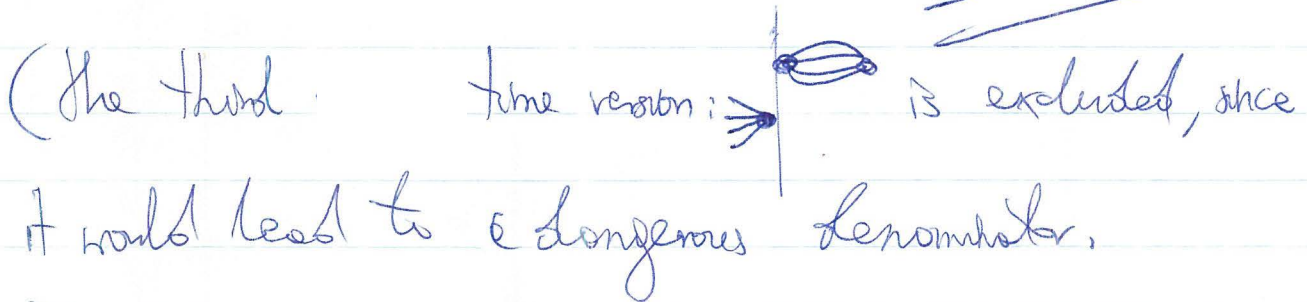 (The third time version: is excluded, since
it would lead to a dangerous denominator.